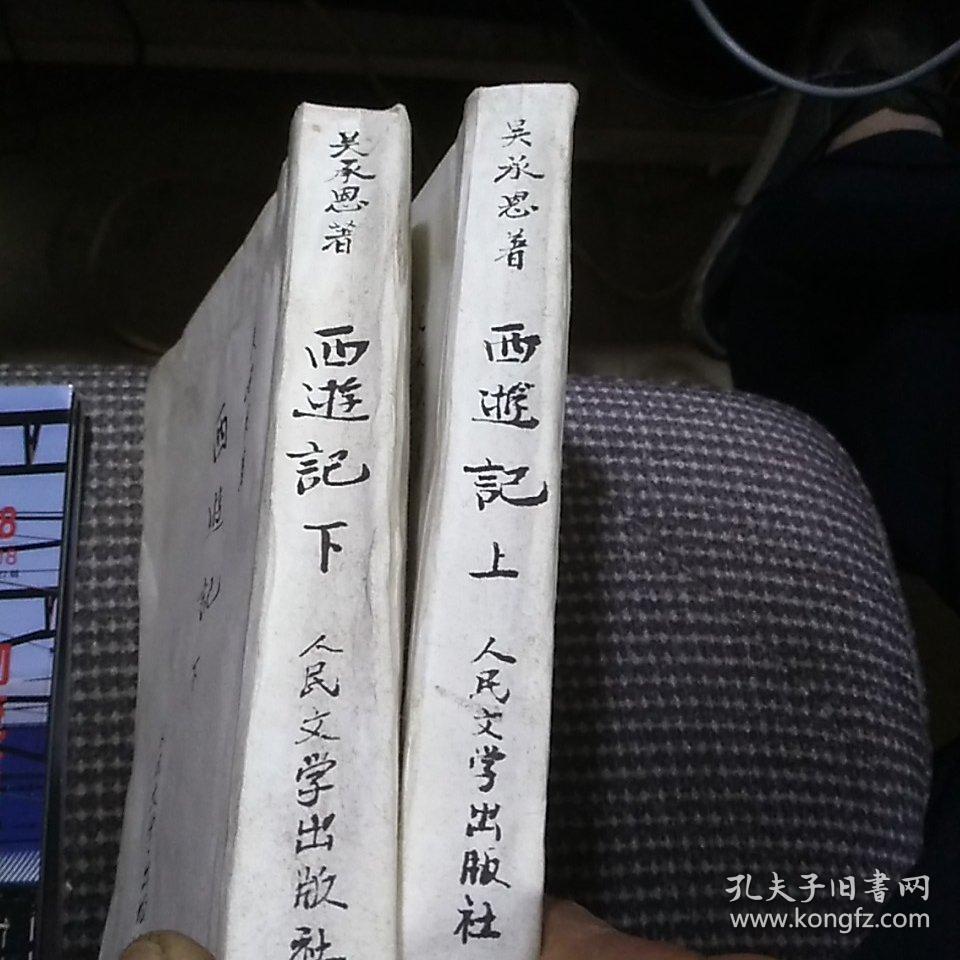 吴承恩著
西遊記
下
人民文学出版社
吴承恩著
西遊記
上
人民文学出版社
西遊記
下
孔夫子旧書网
www.kongfz.com